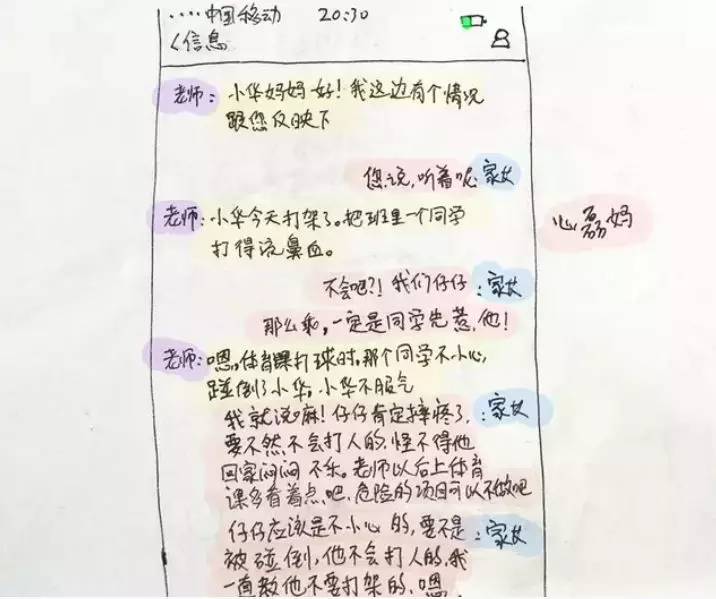 ....中国移动 20:30
<信息
老师: 小华妈妈好!我这边有个情况
跟您反映下
您说,听着呢:家长
老师:小华今天打架了。把班里一个同学
打得流鼻血。
心磊妈
不会吧?!我们仔仔:家长
那么乖,一定是同学先惹他!
老师:嗯,体育课打球时,那个同学不小心,
碰倒了小华,小华不服气
我就说麻!仔仔肯定摔疼了,:家长
要不然不会打人的,怪不得他
回家闷闷不乐。老师以后上体育
课多看着点吧,危险的项目可以不做吧
仔仔应该是不小心的,要不是:家长
被碰倒,他不会打人的,我
一直教他不要打架的,嗯